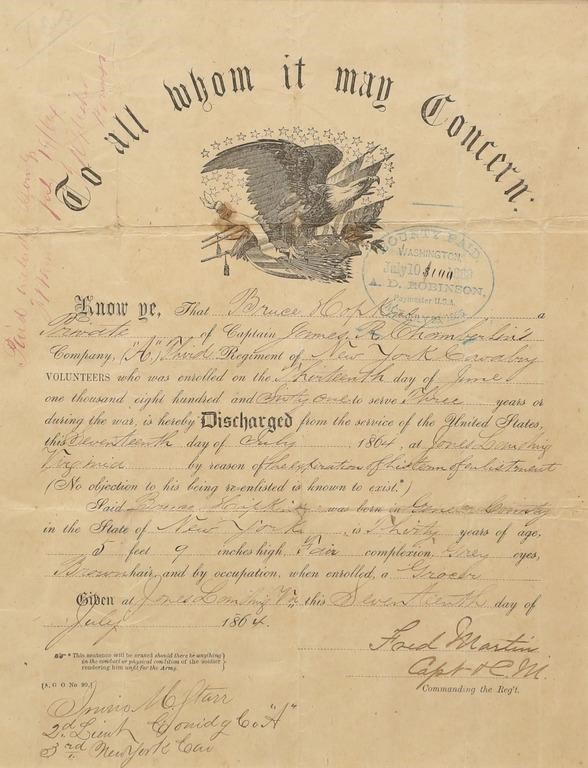 To all whom it may Concern:
BOUNTY PAID
WASHINGTON
July 10 $100
A. D. ROBINSON,
Paymaster U.S.A.
Know ye, That Bruce Hopkins a
Private of Captain James R. Chamberlin's
Company, ("A.") Third Regiment of New York Cavalry
VOLUNTEERS who was enrolled on the Thirteenth day of June
one thousand eight hundred and Sixty one to serve Three years or
during the war, is hereby Discharged from the service of the United States,
this Seventeenth day of July 1864, at Jones Landing
Virginia by reason of the expiration of his term of enlistment
(No objection to his being re-enlisted is known to exist.*)
Said Bruce Hopkins was born in County
in the State of New York, is Thirty years of age,
5 feet 9 inches high, Fair complexion, Grey eyes,
Brown hair, and by occupation, when enrolled, a Grocer
Given at Jones Landing Va this Seventeenth day of
July 1864.
* This sentence will be erased should there be anything
in the conduct or physical condition of the soldier
rendering him unfit for the Army.
Fred Martin
Capt & C.M.
Commanding the Reg't.
[A. G O No 99.]
M. Starr
2d. Lieut Comdg Co "A"
3rd New York Cav